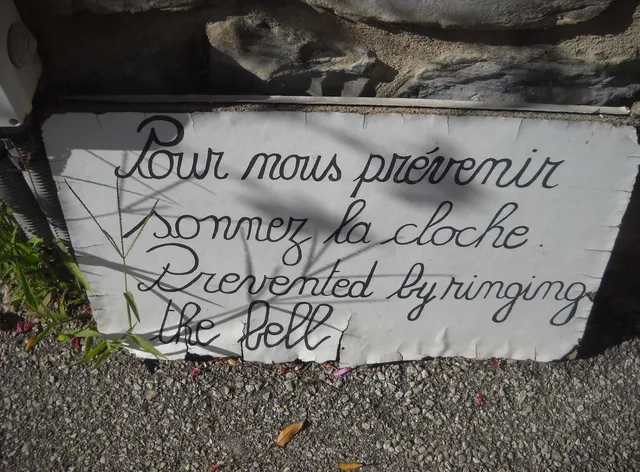 Pour nous prévenir
sonnez la cloche.
Prevented by ringing
the bell